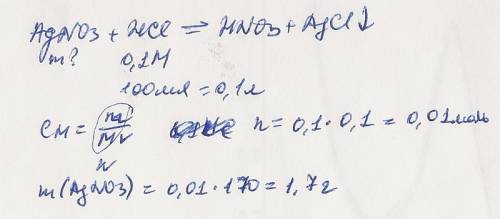 AgNO3 + HCl = HNO3 + AgCl↓
m? 0,1M
100мл = 0,1л
CM = m/MV n = 0,1·0,1 = 0,01моль
n
m(AgNO3) = 0,01·170 = 1,7г